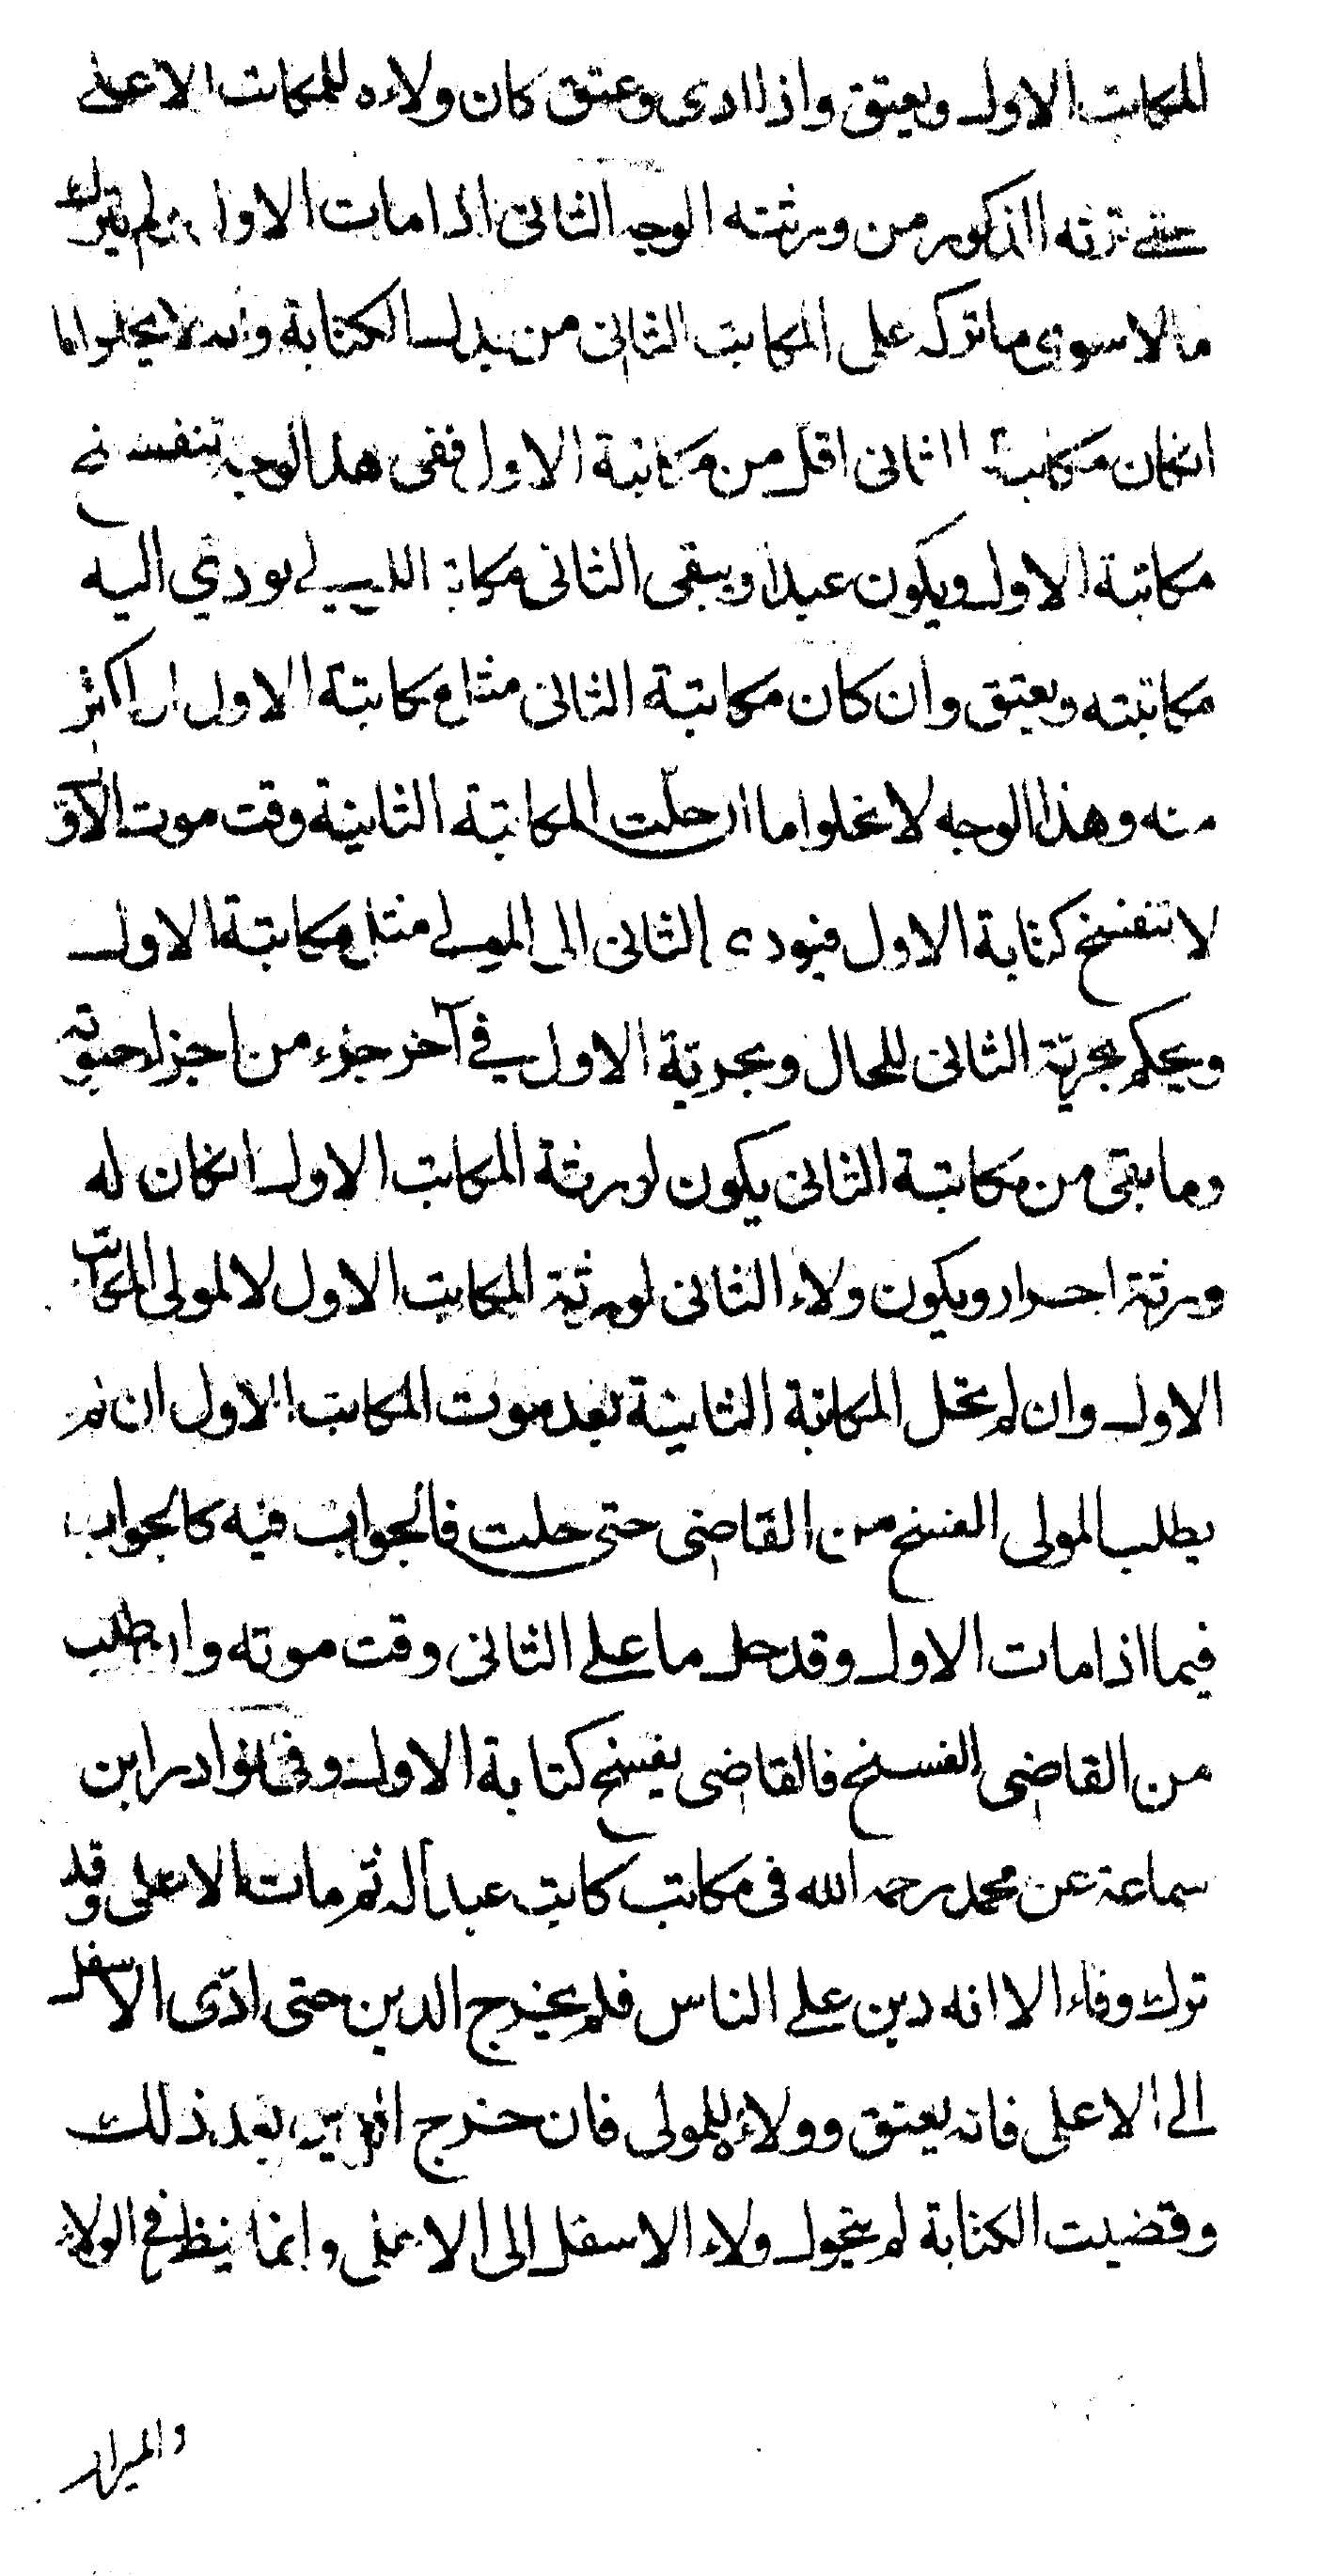 المكاتب الاول ويعتق واذا ادى وعتق كان ولاءه للمكاتب الاعلى
حتى ترثه الذكور من ورثته الوجه الثانى اذا مات الاول ولم يترك
مالا سوى ما تركه على المكاتب الثانى من بدل الكتابة وانه لا يخلوا اما
انكان مكاتبة الثانى اقل من مكاتبة الاول ففى هذا الوجه تنفسخ
مكاتبة الاول ويكون عبدا ويبقى الثانى مكاتبا للمولى يودي اليه
مكاتبته ويعتق وان كان مكاتبة الثانى مثل مكاتبة الاول او اكثر
منه وهذا الوجه لا يخلوا اما ان حلت المكاتبة الثانية وقت موت الاول
لا تنفسخ كتابة الاول فيودى الثانى الى المولى مثل مكاتبة الاول
ويحكم بحرية الثانى للحال وبحرية الاول في آخر جزء من اجزاء حيوته
وما بقى من مكاتبة الثانى يكون لورثة المكاتب الاول انكان له
ورثة احرار ويكون ولاء الثانى لورثة المكاتب الاول لا لمولى المكاتب
الاول وان لم تحل المكاتبة الثانية بعد موت المكاتب الاول ان لم
يطلب المولى الفسخ من القاضى حتى حلت فالجواب فيه كالجواب
فيما اذا مات الاول وقد حل ما على الثانى وقت موته وان طلب
من القاضى الفسخ فالقاضى يفسخ كتابة الاول وفى نوادر ابن
سماعة عن محمد رحمه الله فى مكاتب كاتب عبدا له ثم مات الاعلى وقد
ترك وفاء الا انه دين على الناس فلم يخرج الدين حتى ادّى الاسفل
الى الاعلى فانه يعتق وولاؤه للمولى فان خرج الدين بعد ذلك
وقضيت الكتابة لم يتحول ولاء الاسفل الى الاعلى وانما ينظر فى الولاء
والميراث